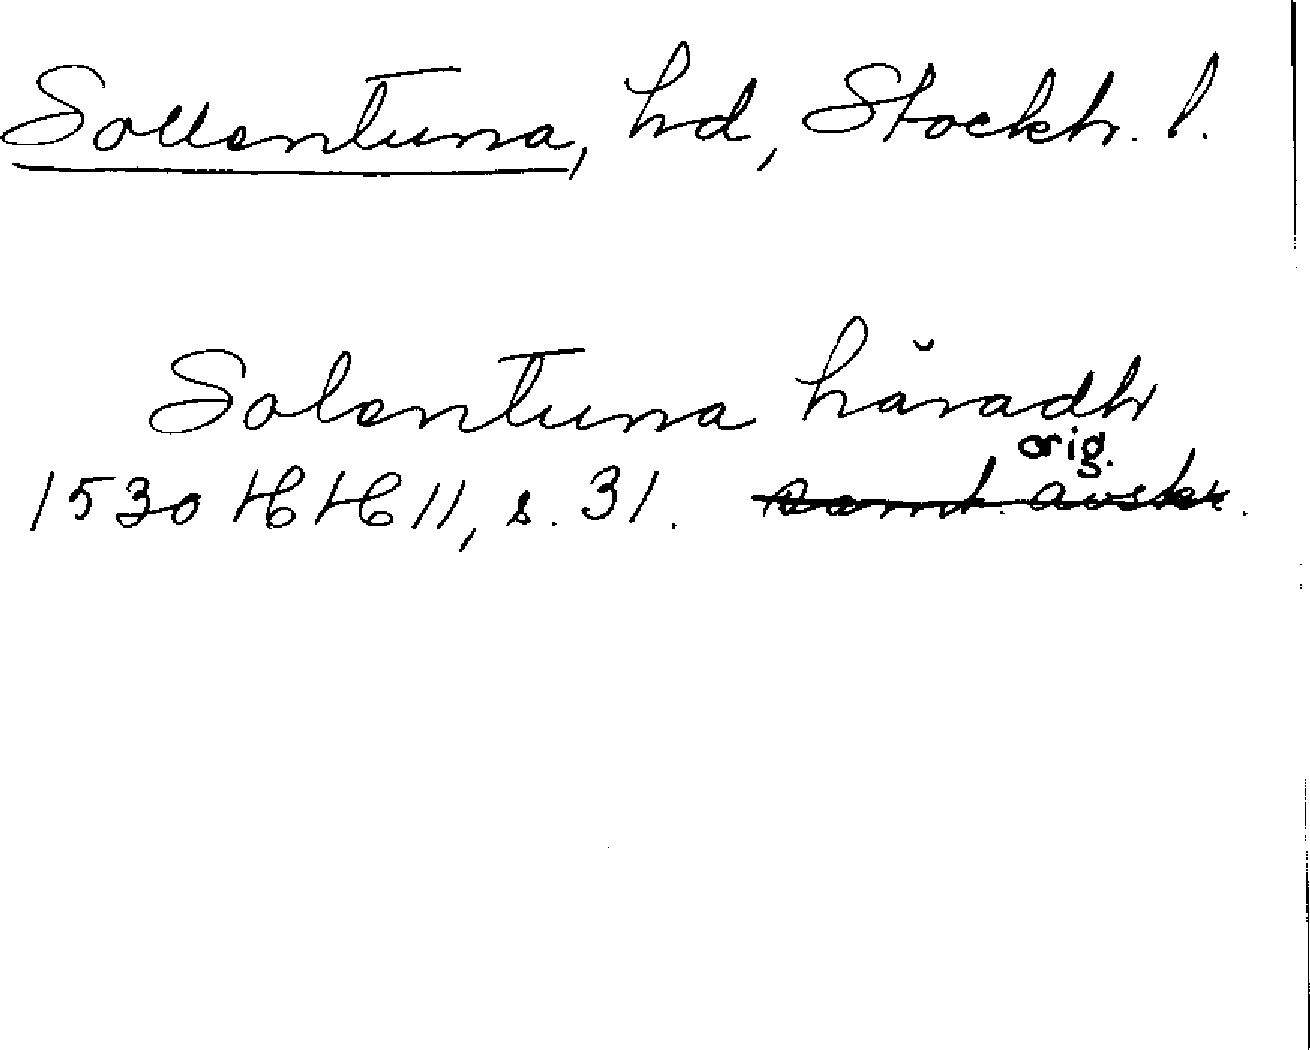 Sollentuna, hd, Stockh. l.
Solentuna häradh
orig.
1530 HH 11, s. 31. samt. avskr.